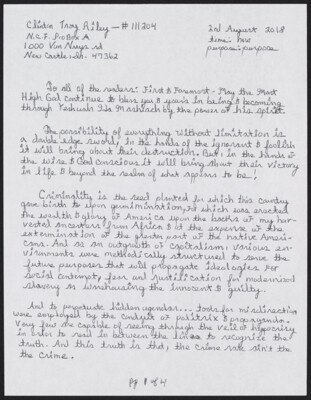 Clinton Troy Riley - # 111204
N.C.F. P.O Box A
1000 Van Nuys rd
New Castle In. 47362
2nd August 2018
time: now
purpose: purpose
To all of the readers: First & Foremost - May the Most
High God continue to bless you & yours in being & becoming
through Yeshuah Ha Mashiach by the power of His Spirit.
The possibility of everything without limitation is
a double edge sword, in the hands of the ignorant & foolish
it will bring about their destruction. But in the hands of
the wise & God conscious it will bring about their victory
in life & beyond the realm of what appears to be!
Criminality is the seed planted for which this country
gave birth to upon culmination, it which was erected
the wealth & glory of America upon the backs of my har-
vested ancestors from Africa & at the expense of the
extermination of the greater part of the native Ameri-
cans. And as an outgrowth of capitalism, various en-
vironments were methodically structured to serve the
future purposes that will propagate ideologies. For
social contempt, fear and justification for modernized
slavery as warehousing the innocent & guilty.
And to perpetuate hidden agendas... tools for misdirection
were employed by the conduit of politrix & propaganda.
Very few are capable of seeing through the veil of hypocrisy
in order to read in between the lines to recognize the
truth. And this truth is that, the crime rate isn't the
the crime.
pg 1 of 4